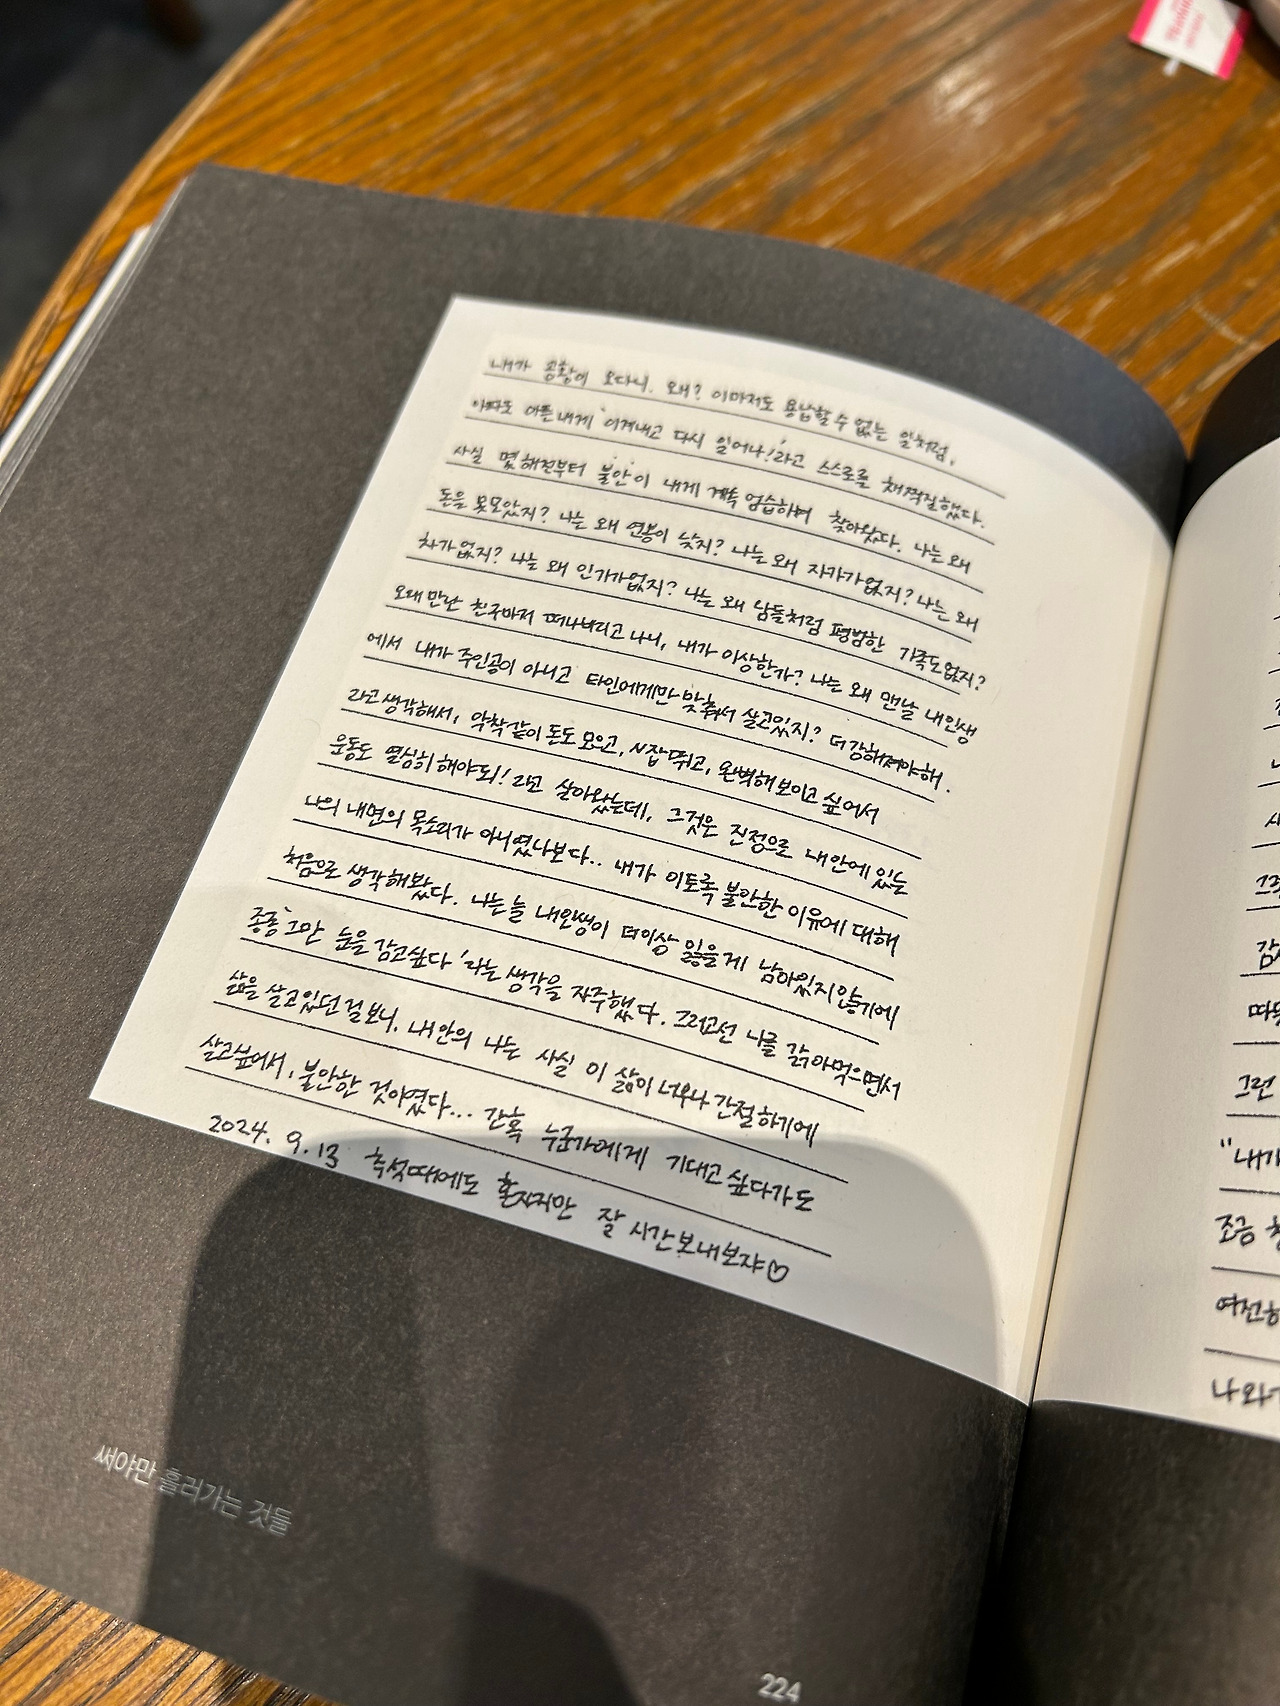 내가 공황이 오다니. 왜? 이마저도 용납할 수 없는 일처럼,
아파도 아픈 내게 '이겨내고 다시 일어나!'라고 스스로를 채찍질했다.
사실 몇 해전부터 불안이 내게 계속 엄습하며 찾아왔다. 나는 왜
돈을 못모았지? 나는 왜 연봉이 낮지? 나는 왜 자가가없지? 나는 왜
차가없지? 나는 왜 인기가없지? 나는 왜 남들처럼 평범한 가족도없지?
오래 만난 친구마저 떠나버리고 나니, 내가 이상한가? 나는 왜 맨날 내인생
에서 내가 주인공이 아니고 타인에게만 맞춰서 살고있지? 더 강해져야해.
라고 생각해서, 악착같이 돈도 모으고, N잡 뛰고, 완벽해 보이고 싶어서
운동도 열심히 해야돼! 라고 살아왔는데, 그것은 진정으로 내안에 있는
나의 내면의 목소리가 아니였나보다.. 내가 이토록 불안한 이유에 대해
처음으로 생각해봤다. 나는 늘 내인생이 더이상 잃을게 남아있지않기에
종종 '그만 눈을 감고싶다'라는 생각을 자주했다. 그러고선 나를 갉아먹으면서
삶을 살고있던걸보니. 내 안의 나는 사실 이 삶이 너무나 간절하기에
살고싶어서, 불안한 것이였다... 간혹 누군가에게 기대고 싶다가도
2024. 9. 13 추석때에도 혼자지만 잘 시간보내보자♡
써야만 흘러가는 것들
224
그런
"내가
조금
나와